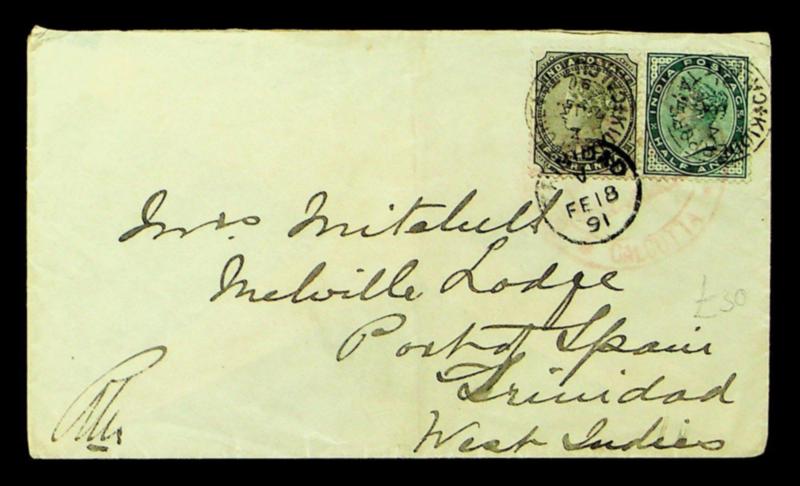 INDIA POSTAGE
INDIA POSTAGE
HALF AN
FE 18
91
CALCUTTA
Mrs Mitchell
Melville Lodge
£30
Port of Spain
Trinidad
West Indies